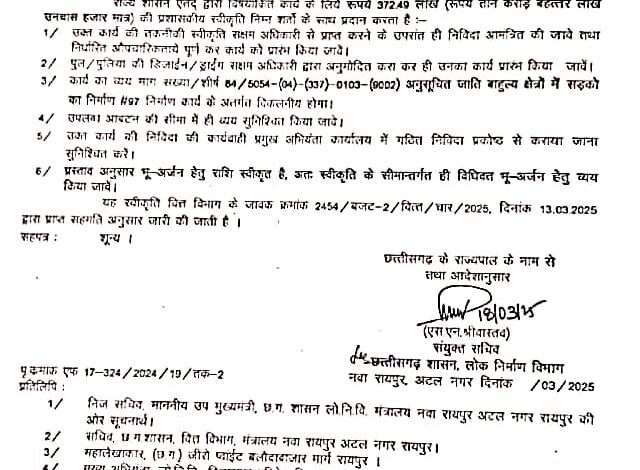 राज्य शासन एतद् द्वारा विषयांकित कार्य के लिये रूपये 372.49 लाख (रूपये तीन करोड़ बहत्तर लाख
उनचास हजार मात्र) की प्रशासकीय स्वीकृति निम्न शर्तों के साथ प्रदान करता है :–
1/ उक्त कार्य की तकनीकी स्वीकृति सक्षम अधिकारी से प्राप्त करने के उपरांत ही निविदा आमंत्रित की जावे तथा
निर्धारित औपचारिकताये पूर्ण कर कार्य को प्रारंभ किया जावें।
2/ पुल/पुलिया की डिजाईन/ड्राईंग सक्षम अधिकारी द्वारा अनुमोदित करा कर ही उनका कार्य प्रारंभ किया जावें।
3/ कार्य का व्यय मांग संख्या/शीर्ष 64/5054-(04)-(337)-0103-(9002) अनुसूचित जाति बाहुल्य क्षेत्रों में सड़को
का निर्माण #97 निर्माण कार्य के अंतर्गत विकलनीय होगा।
4/ उपलब्ध आबंटन की सीमा में ही व्यय सुनिश्चित किया जावें।
5/ उक्त कार्य की निविदा की कार्यवाही प्रमुख अभियंता कार्यालय में गठित निविदा प्रकोष्ठ से कराया जाना
सुनिश्चित करें।
6/ प्रस्ताव अनुसार भू-अर्जन हेतु राशि स्वीकृत है, अतः स्वीकृति के सीमान्तर्गत ही विधिवत भू-अर्जन हेतु व्यय
किया जावें।
यह स्वीकृति वित्त विभाग के जावक क्रमांक 2454/बजट-2/वित्त/चार/2025, दिनांक 13.03.2025
द्वारा प्राप्त सहमति अनुसार जारी की जाती है ।
सहपत्र : शून्य ।
छत्तीसगढ़ के राज्यपाल के नाम से
तथा आदेशानुसार
18/03/25
(एस.एन.श्रीवास्तव)
संयुक्त सचिव
छत्तीसगढ़ शासन, लोक निर्माण विभाग
नवा रायपुर, अटल नगर दिनांक /03/2025
पृ.क्रमांक एफ 17-324/2024/19/तक-2
प्रतिलिपि :
1/ निज सचिव, माननीय उप मुख्यमंत्री, छ.ग. शासन लो.नि.वि. मंत्रालय नवा रायपुर अटल नगर रायपुर की
ओर सूचनार्थ।
2/ सचिव, छ.ग.शासन, वित्त विभाग, मंत्रालय नवा रायपुर अटल नगर रायपुर।
3/ महालेखाकार, (छ.ग.) जीरो प्वाईंट बलौदाबाजार मार्ग रायपुर ।